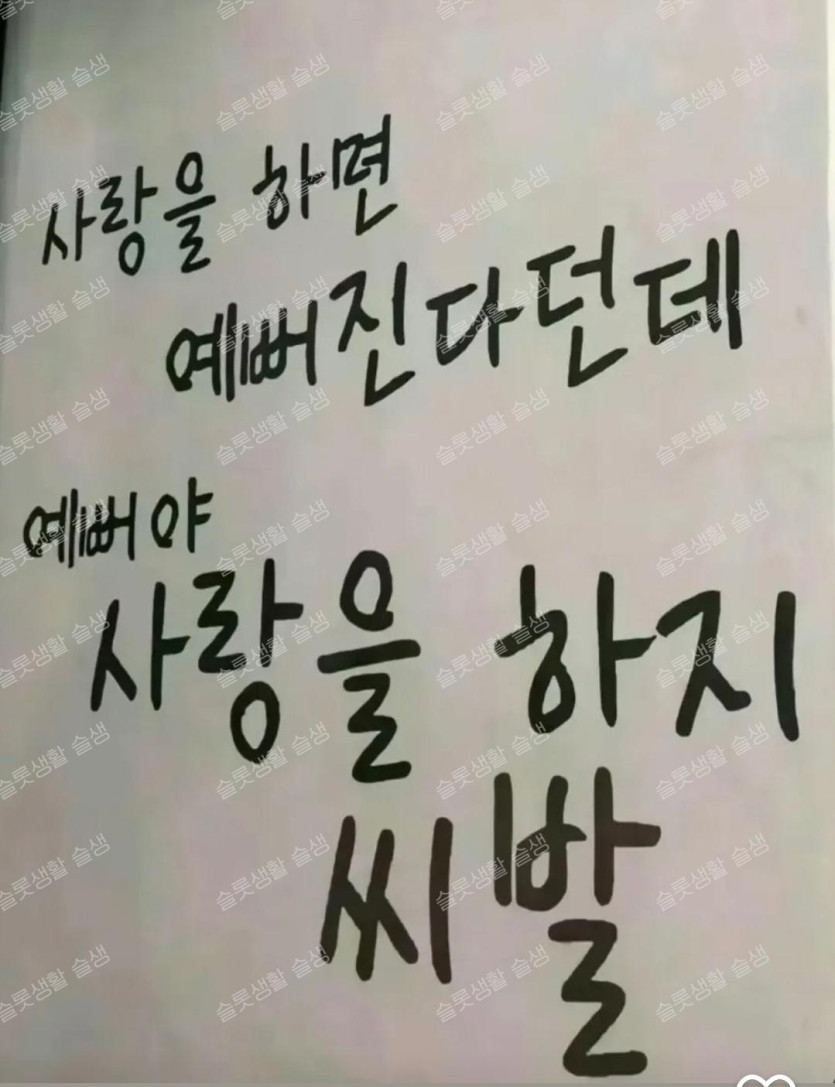 사랑을 하면
예뻐진다던데
예뻐야
사랑을 하지
씨발
슬롯생활 슬생